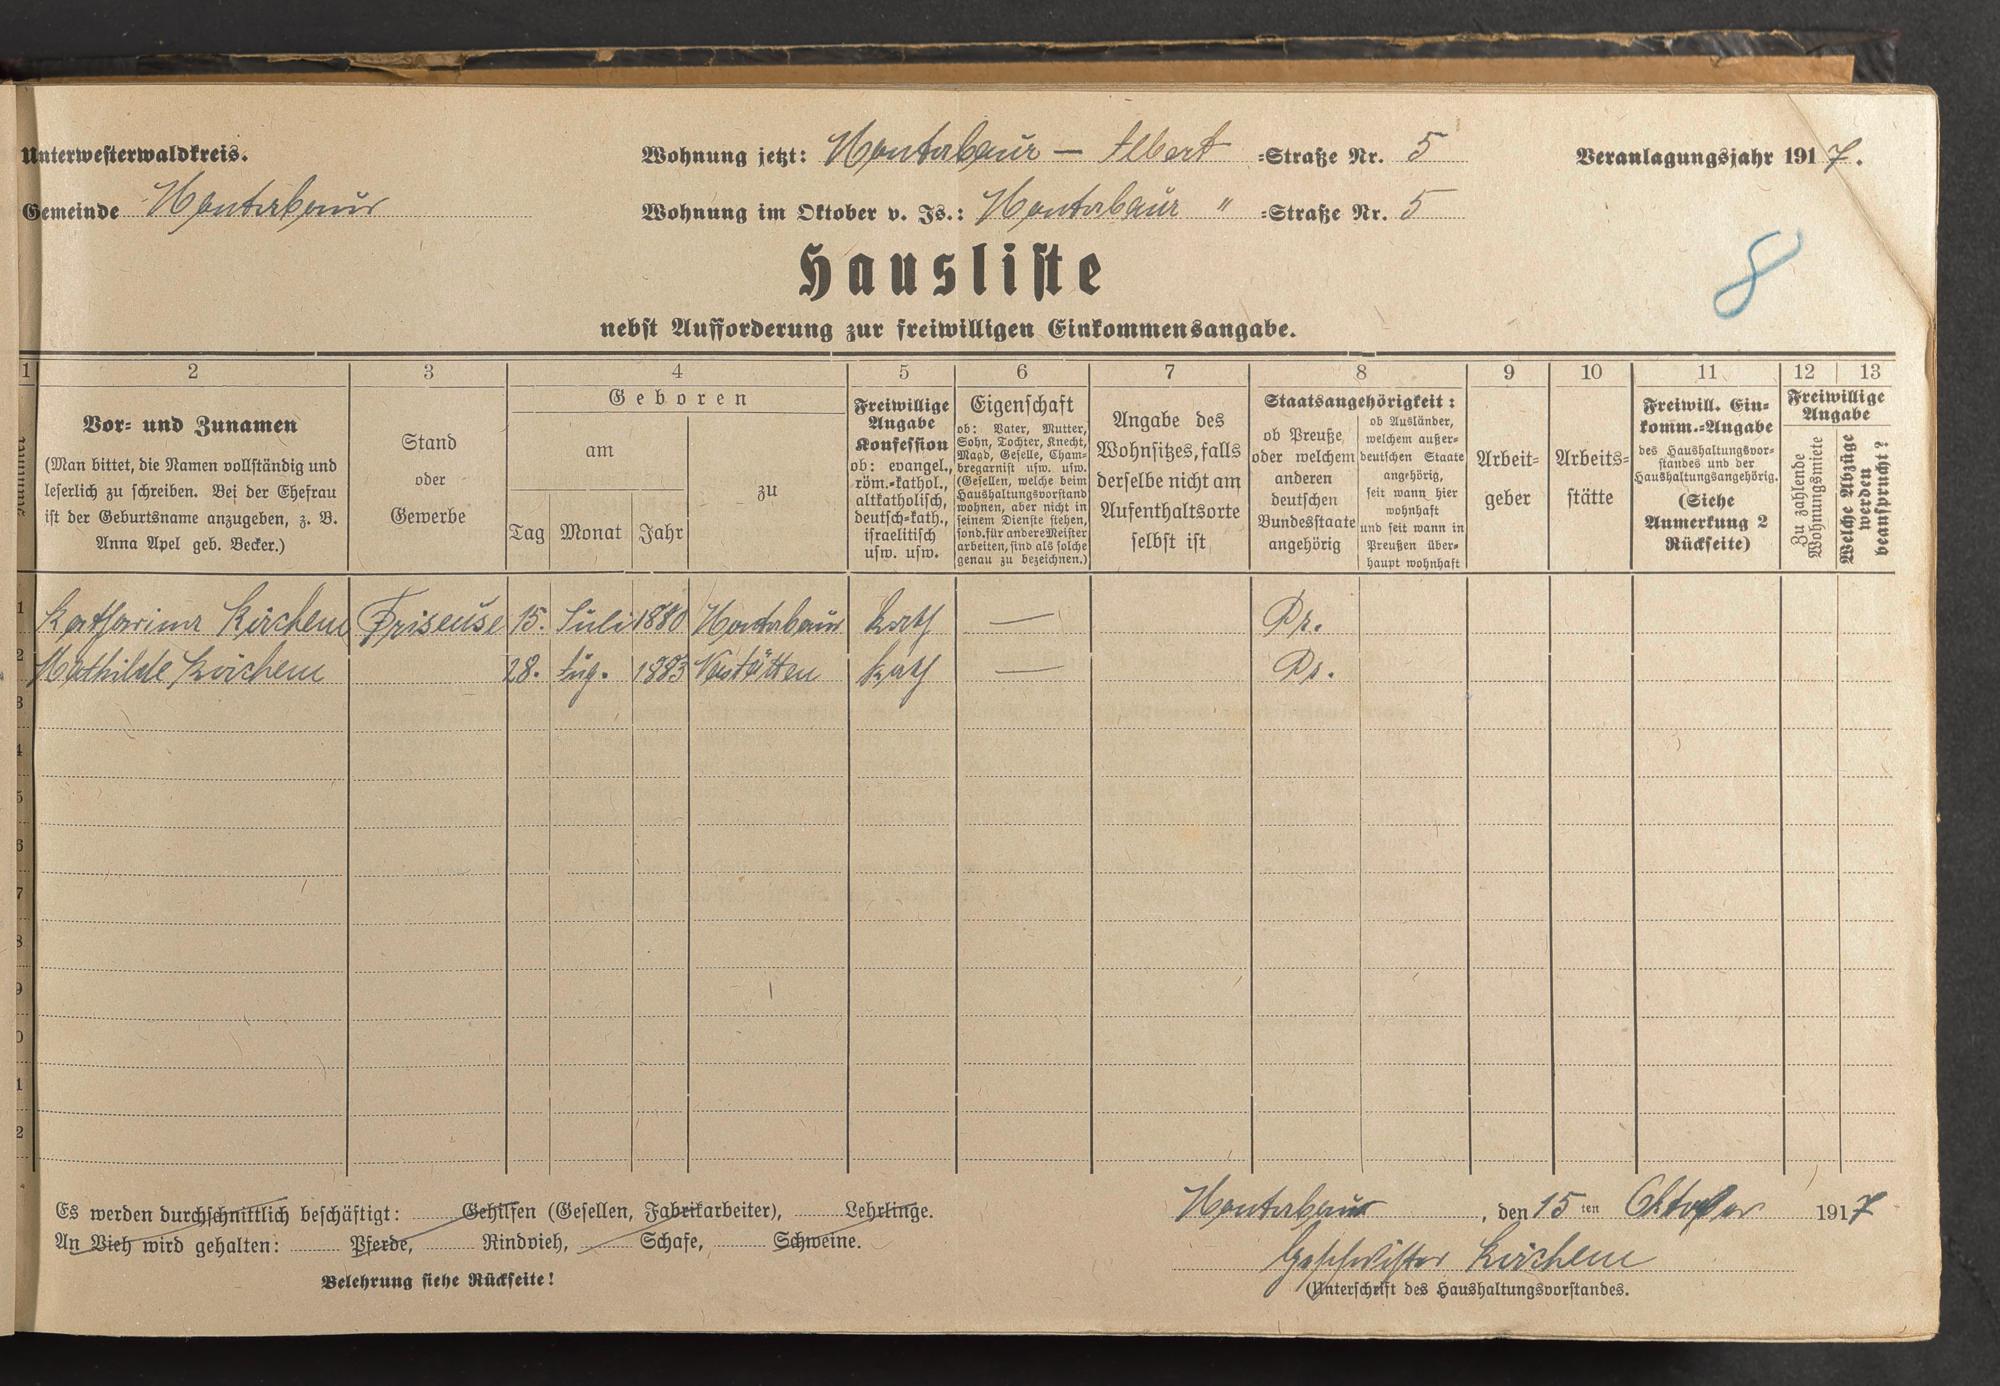 Unterwesterwaldkreis.
Wohnung jetzt: Montabaur — Albert =Straße Nr. 5
Veranlagungsjahr 1917.
Gemeinde Montabaur
Wohnung im Oktober v. Js.: Montabaur " =Straße Nr. 5
8
Hausliste
nebst Aufforderung zur freiwilligen Einkommensangabe.
1 2 3 4 5 6 7 8 9 10 11 12 13
Vor= und Zunamen
(Man bittet, die Namen vollständig und
leserlich zu schreiben. Bei der Ehefrau
ist der Geburtsname anzugeben, z. B.
Anna Apel geb. Becker.)
Stand
oder
Gewerbe
Geboren
am
Tag Monat Jahr
zu
Freiwillige
Angabe
Konfession
ob: evangel.,
röm.=kathol.,
altkatholisch,
deutsch=kath.,
israelitisch
usw. usw.
Eigenschaft
ob: Vater, Mutter,
Sohn, Tochter, Knecht,
Magd, Geselle, Cham=
bregarnist usw. usw.
(Gesellen, welche beim
Haushaltungsvorstand
wohnen, aber nicht in
seinem Dienste stehen,
sond. für andere Meister
arbeiten, sind als solche
genau zu bezeichnen.)
Angabe des
Wohnsitzes, falls
derselbe nicht am
Aufenthaltsorte
selbst ist
Staatsangehörigkeit:
ob Preuße
oder welchem
anderen
deutschen
Bundesstaate
angehörig
ob Ausländer,
welchem außer=
deutschen Staate
angehörig,
seit wann hier
wohnhaft
und seit wann in
Preußen über=
haupt wohnhaft
Arbeit=
geber
Arbeits=
stätte
Freiwill. Ein=
komm.=Angabe
des Haushaltungsvor=
standes und der
Haushaltungsangehörig.
(Siehe
Anmerkung 2
Rückseite)
Freiwillige
Angabe
Zu zahlende
Wohnungsmiete
Welche Abzüge
werden
beansprucht?
1 Katharina Kirchem Friseuse 15. Juli 1880 Montabaur kath — Pr.
2 Mathilde Kirchem 28. Aug. 1883 Nastätten kath — Pr.
3
4
5
6
7
8
9
0
1
2
Es werden durchschnittlich beschäftigt: Gehilfen (Gesellen, Fabrikarbeiter), Lehrlinge.
An Vieh wird gehalten: Pferde, Rindvieh, Schafe, Schweine.
Belehrung siehe Rückseite!
Montabaur, den 15ten Oktober 1917
Geschwister Kirchem
(Unterschrift des Haushaltungsvorstandes.